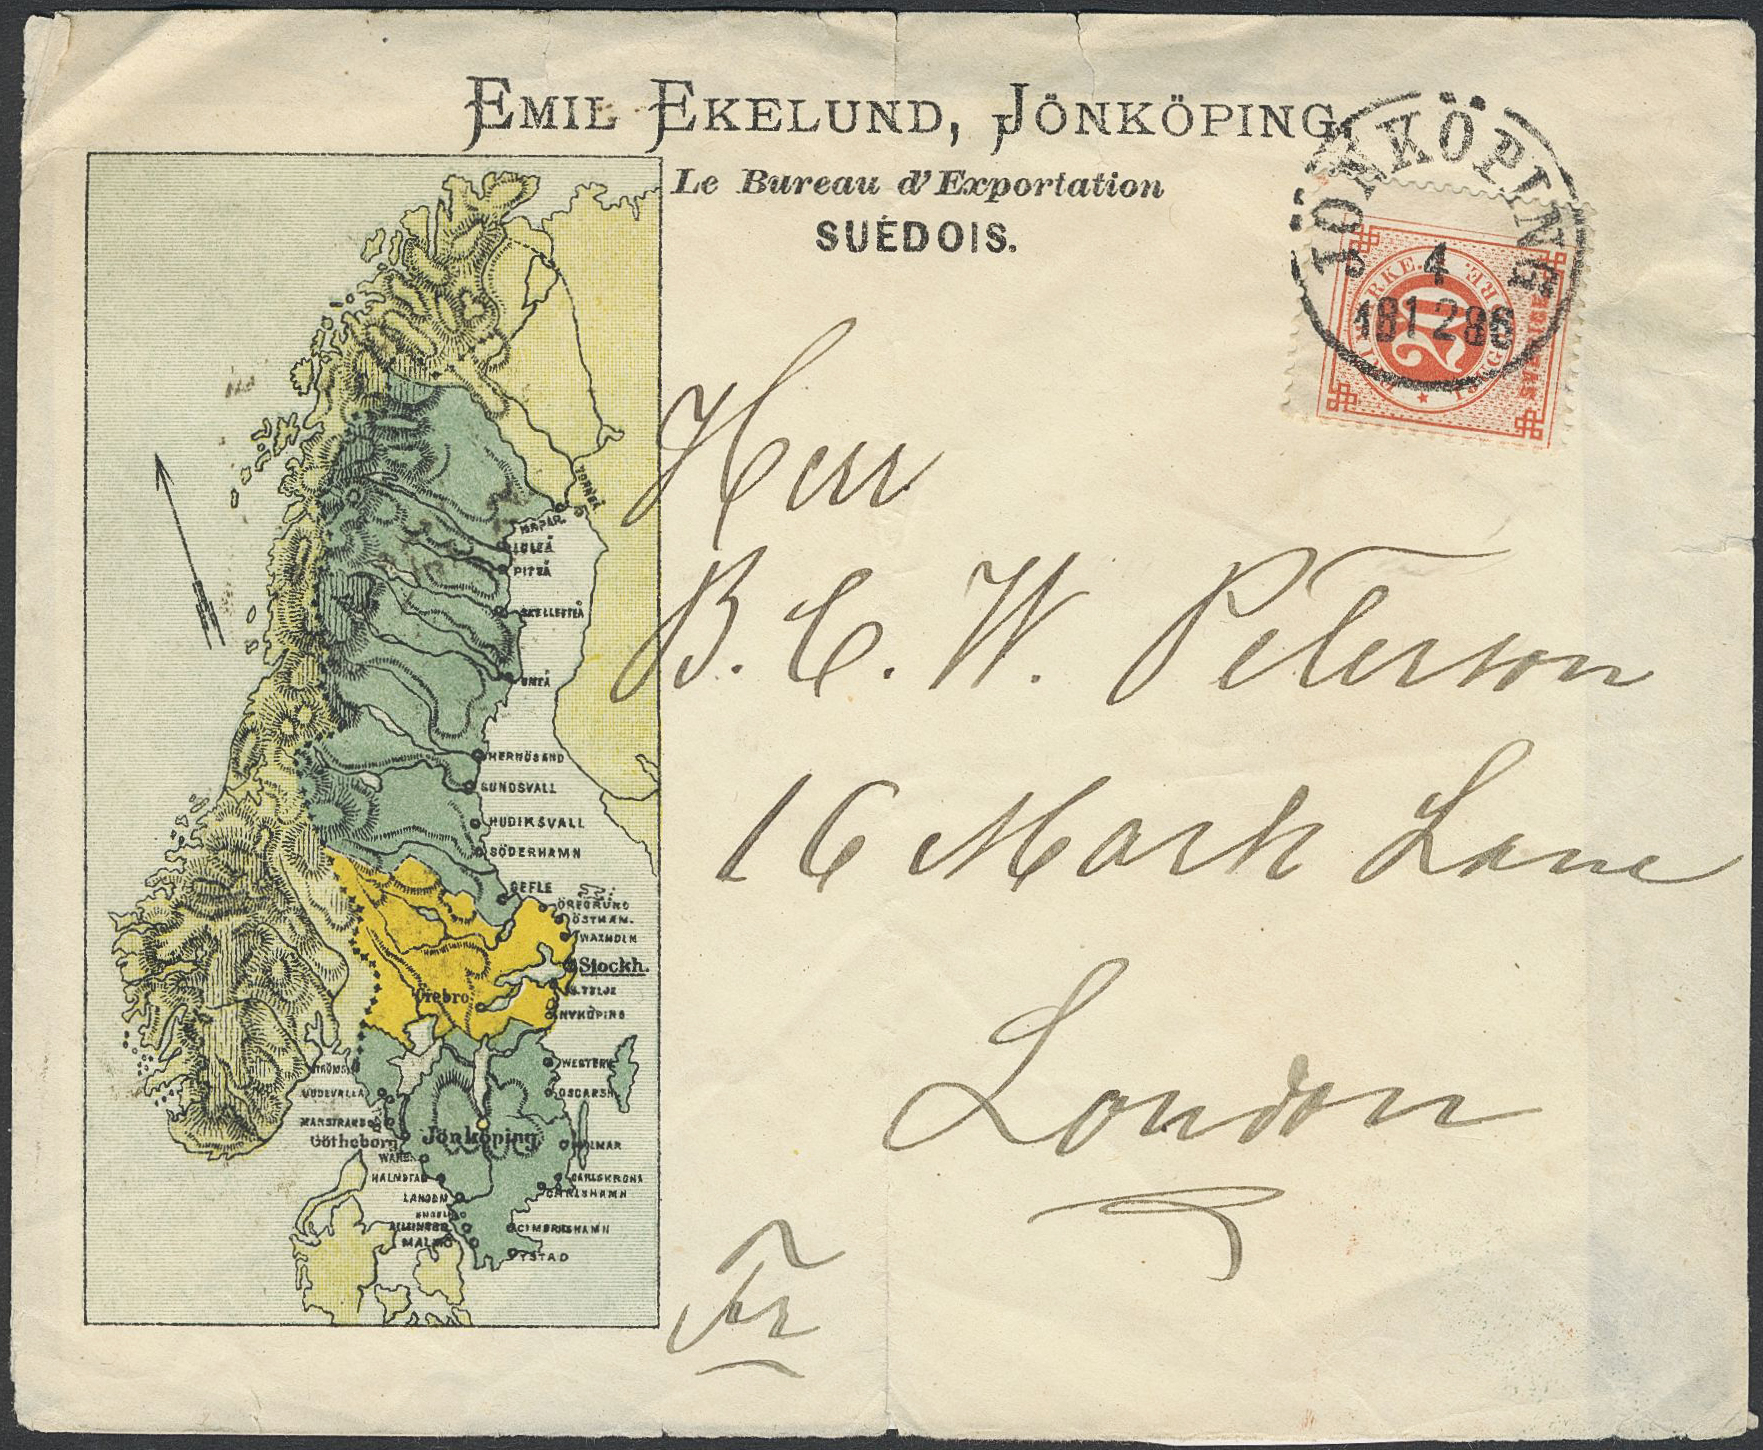 EMIL EKELUND, JÖNKÖPING.
Le Bureau d'Exportation
SUÉDOIS.
JÖNKÖPING
4
18 12 86
20
Herr
B. C. W. Peterson
16 Mark Lane
London
Fr
TORNEÅ
HAPAR.
LULEÅ
PITEÅ
SKELLEFTEÅ
UMEÅ
HERNÖSAND
SUNDSVALL
HUDIKSVALL
SÖDERHAMN
GEFLE
ÖREGRUND
ÖSTHAM.
WAXHOLM
Stockh.
S. TELJE
Örebro
NYKÖPING
WESTERV.
UDDEVALLA
OSCARSH.
MARSTRAND
Götheborg
Jönköping
KALMAR
HALMSTAD
CARLSKRONA
CARLSHAMN
CIMBRISHAMN
MALMÖ
YSTAD